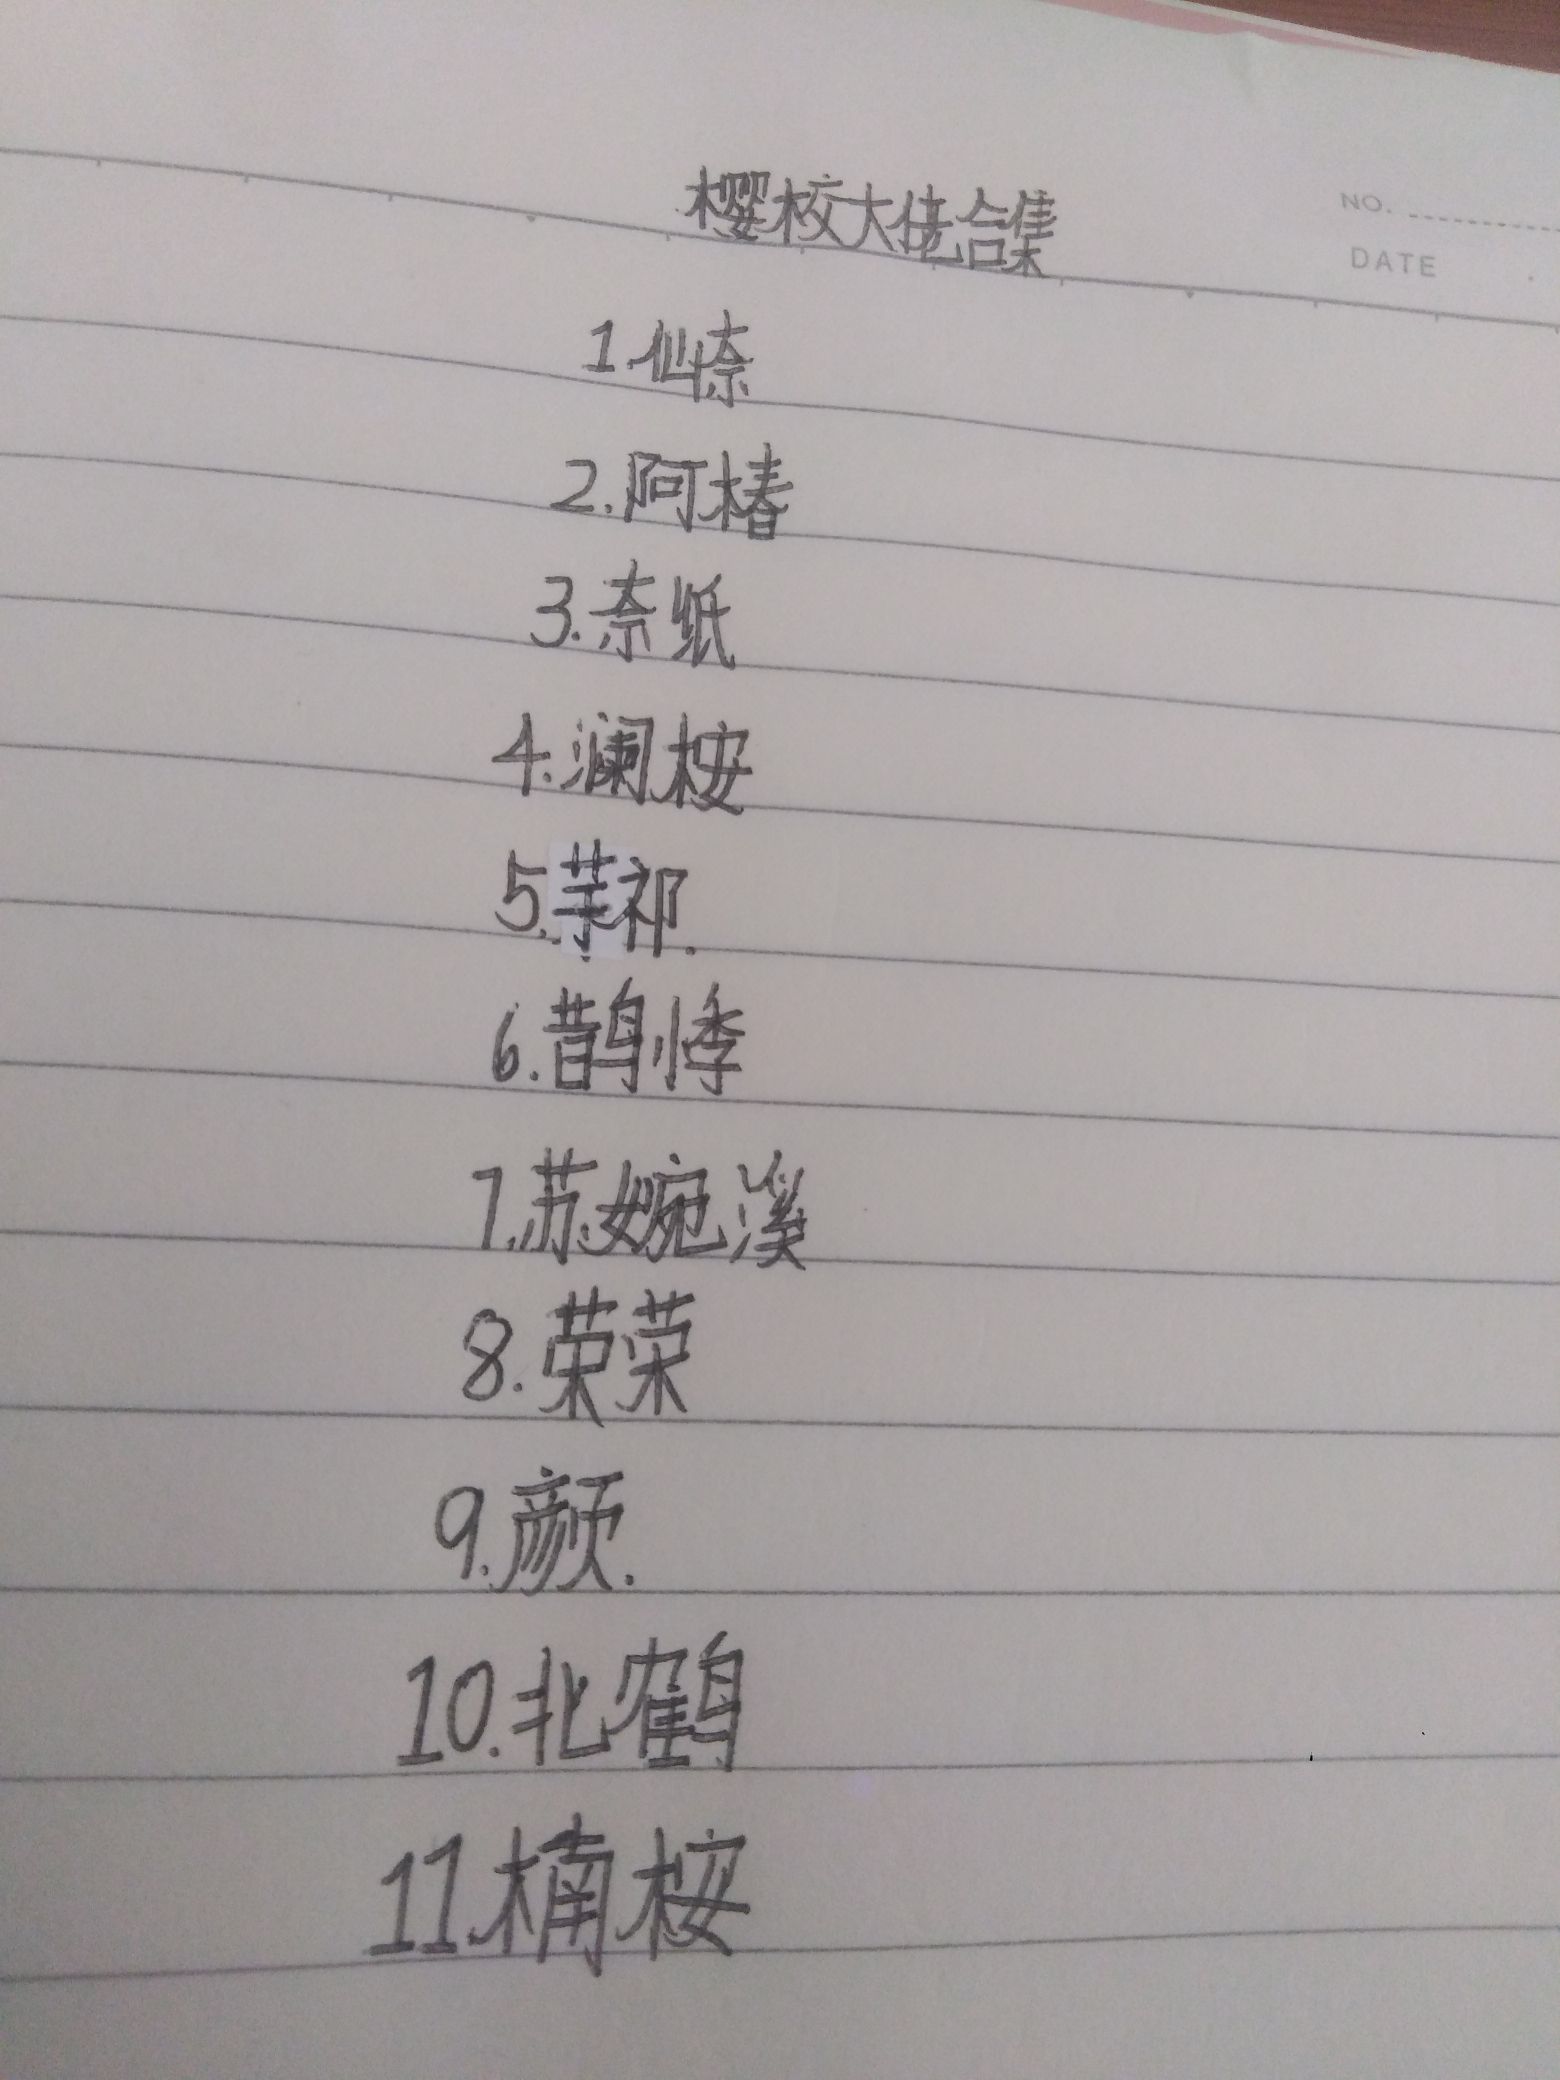 樱校大佬合集
NO.
DATE
1.仙柰
2.阿椿
3.奈纸
4.澜桉
5.芋祁.
6.鹊悸
7.苏婉溪
8.荣荣
9.颜.
10.北鹤
11.楠桉